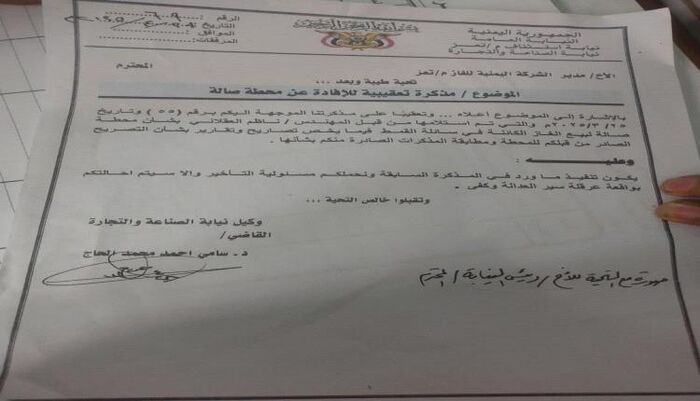 الجمهورية اليمنية
النيابة العامة
نيابة استئناف م/تعز
نيابة الصناعة والتجارة
الرقم :
التاريخ :
الموافق :
المرفقات :
الاخ/ مدير الشركة اليمنية للغاز م/تعز المحترم
تحية طيبة وبعد ...
الموضوع / مذكرة تعقيبية للإفادة عن محطة صالة
بالإشارة إلى الموضوع أعلاه ... وتعقيبا على مذكرتنا الموجهة اليكم برقم (٥٥) وتاريخ
٢٠٢٥/٣/٢٥م والتي تم استلامها من قبل المهندس / ناظم العقلاني بشان محطة
صالة لبيع الغاز الكائنة في سائلة القمط فيما يخص تصاريح وتقارير بشان التصريح
الصادر من قبلكم للمحطة ومطابقة المذكرات الصادرة منكم بشأنها .
وعليه :
يكون تنفيذ ما ورد في المذكرة السابقة ونحملكم مسئولية التأخير والا سيتم احالتكم
بواقعة عرقلة سير العدالة وكفى .
وتقبلوا خالص التحية ...
وكيل نيابة الصناعة والتجارة
القاضي/
د. سامي احمد محمد الحاج
صورة مع التحية للأخ / رئيس النيابة / المحترم